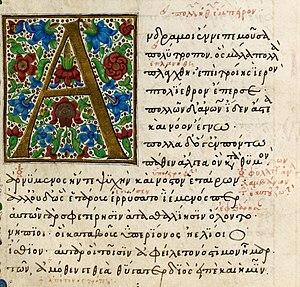 Ἄνδρα μοι ἔννεπε μοῦσα
πολύτροπον, ὃς μάλα πολλὰ
πλάγχθη· ἐπεὶ τροίης ἱερὸν
πτολίεθρον ἔπερσε·
πολλῶν δ' ἀνθρώπων ἴδεν ἄστεα
καὶ νόον ἔγνω·
πολλὰ δ' ὅγ' ἐν πόντω
πάθεν ἄλγεα ὃν κατὰ θυμόν·
ἀρνύμενος ἥν τε ψυχὴν καὶ νόστον ἑταίρων
ἀλλ' οὐδ' ὣς ἑτάρους ἐρρύσατο ἱέμενός περ
αὐτῶν γὰρ σφετέρησιν ἀτασθαλίησιν ὄλοντο
νήπιοι οἳ κατὰ βοῦς ὑπερίονος ἠελίοιο
ἤσθιον· αὐτὰρ ὁ τοῖσιν ἀφείλετο νόστιμον ἦμαρ
τῶν ἁμόθεν γε θεὰ θύγατερ διὸς εἰπὲ καὶ ἡμῖν